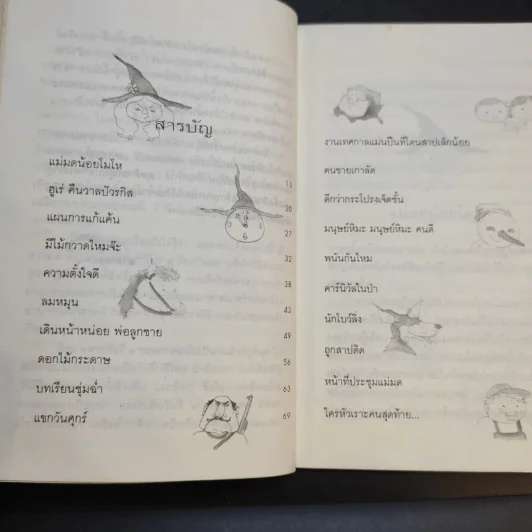 สารบัญ
แม่มดน้อยโมโห 13
ฮูเร่ คืนวาลปัวรกิส 20
แผนการแก้แค้น 27
มีไม้กวาดไหมจ๊ะ 32
ความตั้งใจดี 38
ลมหมุน 43
เดินหน้าหน่อย พ่อลูกชาย 49
ดอกไม้กระดาษ 56
บทเรียนชุ่มฉ่ำ 63
แขกวันศุกร์ 69
งานเทศกาลแม่นปืนที่โดนสาปเล็กน้อย
คนขายเกาลัด
ดีกว่ากระโปรงเจ็ดชั้น
มนุษย์หิมะ มนุษย์หิมะ คนดี
พนันกันไหม
คาร์นิวัลในป่า
นักโบว์ลิ่ง
ถูกสาปติด
หน้าที่ประชุมแม่มด
ใครหัวเราะคนสุดท้าย...